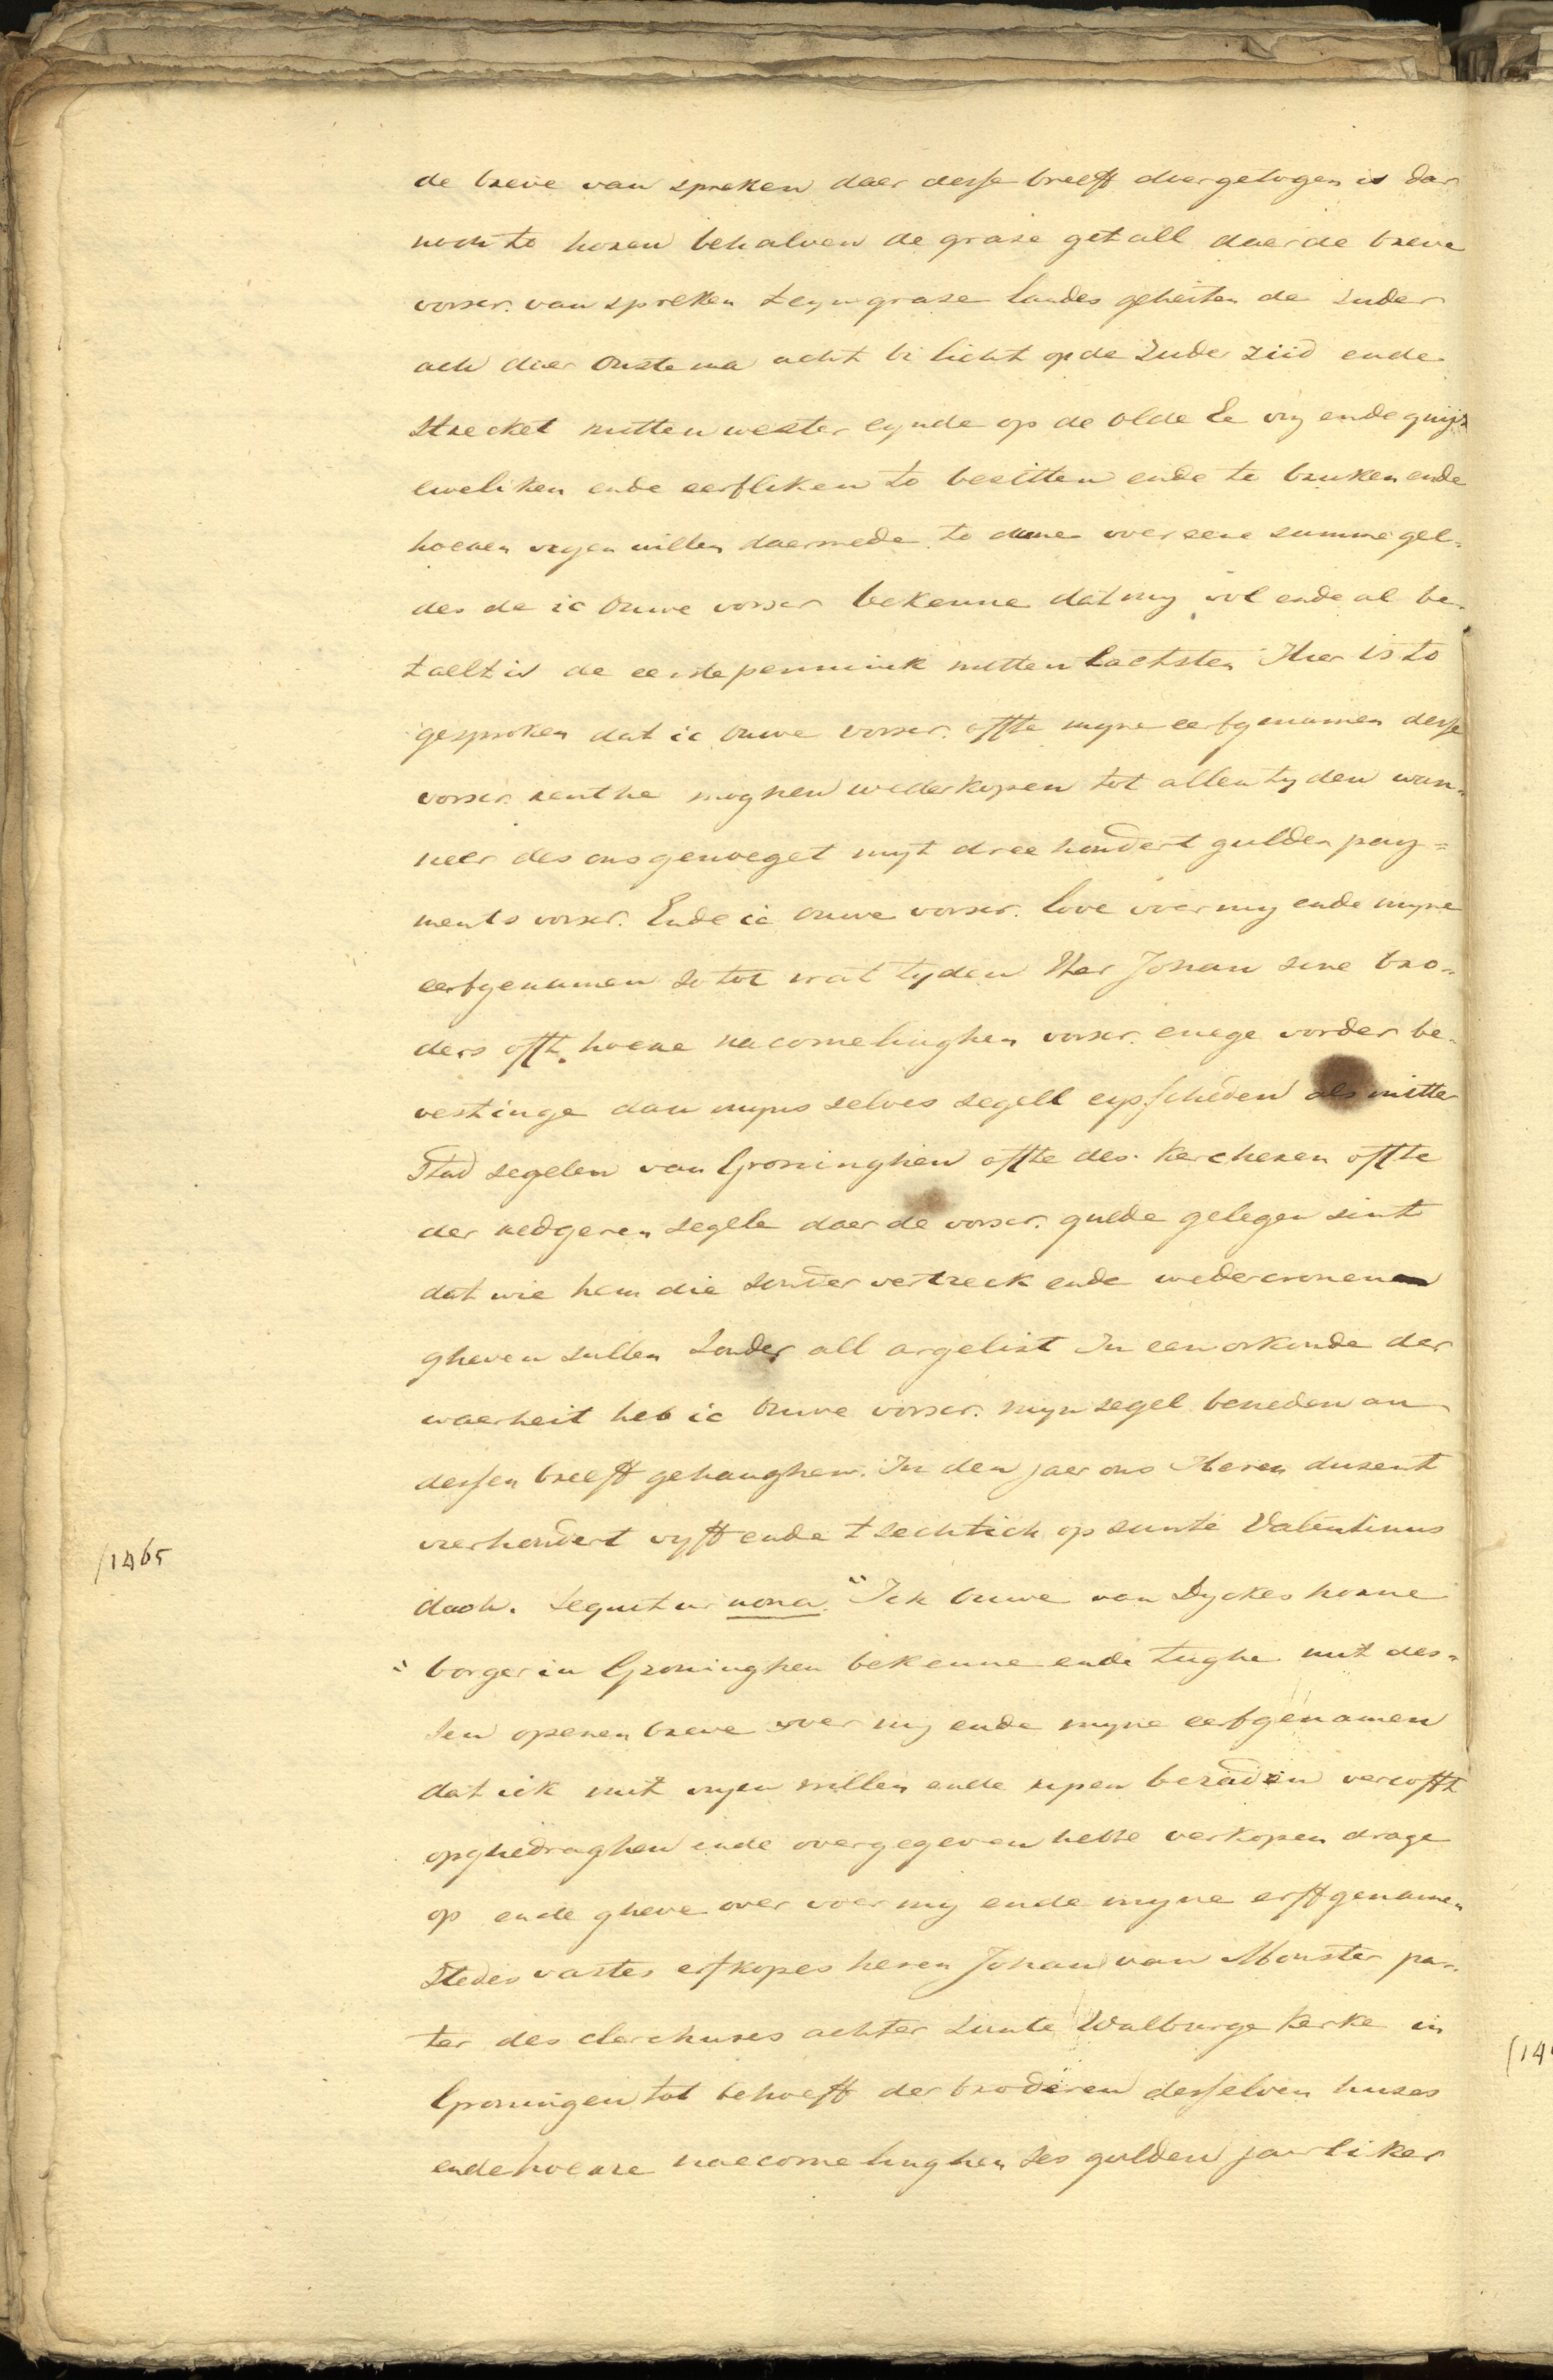 de breve van spreken daer desse breeff doergetogen is dar
noch to horen behalven de grase getall daer de breve
vorscr. van spreken teyn grase landes geheiten de zuder
ach dier Onstema acht bi licht op de zuder ziid ende
strecket mitten wester eynde op de olde Ee vry ende quijt
eweliken ende eerfliken to besitten ende te bruken ende
hoeren vryen willen daermede to done voer eene summe gel-
des de ic Ouwe vorscr bekenne dat my wol ende al be-
taelt is de eerste pennink mitten lactsten Hier is to
gesproken dat ic Ouwe vorscr. offte myne eerfgenamen desse
vorscr. renthe moghen wederkopen tot allen tyden wan-
neer des ons genoeget myt dree hondert gulden pay=
ments vorscr. Ende ic Ouwe vorscr. love voer my ende myne
eerfgenamen so tot wat tyden Her Johan sine bro-
ders offt hoere nacomelinghen vorscr. enege vorder be-
vestinge dan myns selves segell eysscheden als mitter
Stad segelen van Groninghen offte des kercheren offte
der redgeren segele daer de vorscr. guede gelegen sint
dat wie hem die sonder vertreck ende wedercronen
gheven sullen sonder all argelist In een orkonde der
waerheit heb ic Ouwe vorscr. myn segel beneden an
dessen breeff gehanghen. In den jaer ons Heren dusent
vierhondert vyff ende tsechtich op sunte Valentinus
dach. Sequitur nona. "Ick Ouwe van Dyckes horne
" borger in Groninghen bekenne ende tughe mit des-
sen openen breve voer my ende myne eerfgenamen
dat ick mit vryen willen ende rypen beraden vercofft
opghedraghen ende overgegeven hebbe verkopen drage
op ende gheve over voer my ende myne erffgenamen
stedes vastes erfkopes heren Johan van Monster pa-
ter des clerckhuses achter sunte Walburge kerke in
Groningen tot behoeff der broderen desselven huses
ende hoere naecomelinghen ses gulden jaerliker
/1465